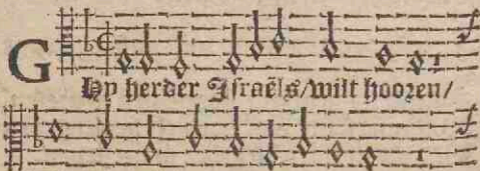 GHy herder Israëls/wilt hooren/